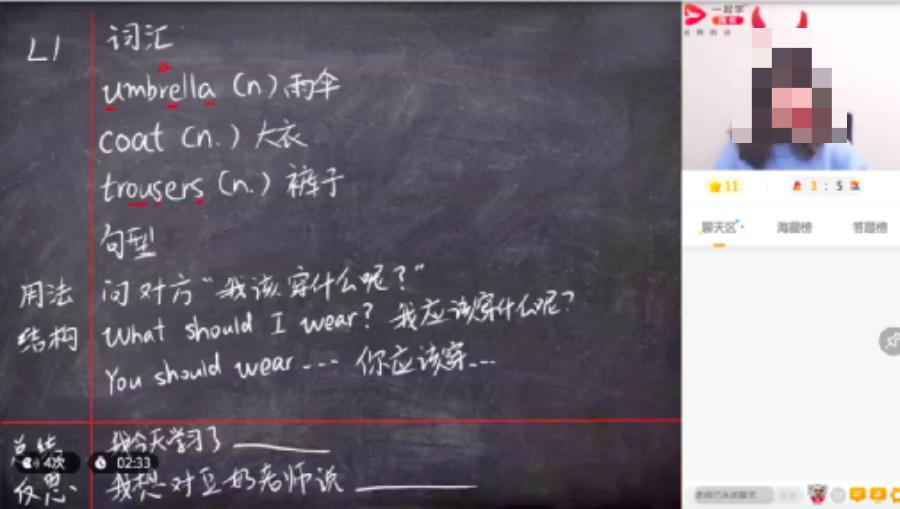 L1 词汇
umbrella (n.) 雨伞
coat (n.) 大衣
trousers (n.) 裤子
句型
用法 问对方“我该穿什么呢？”
结构 What should I wear? 我应该穿什么呢?
You should wear --- 你应该穿---
总结 我今天学习了 ____
反思 我想对豆奶老师说 ____
4次 02:33
一起学
11
3 : 5
聊天区 答题榜